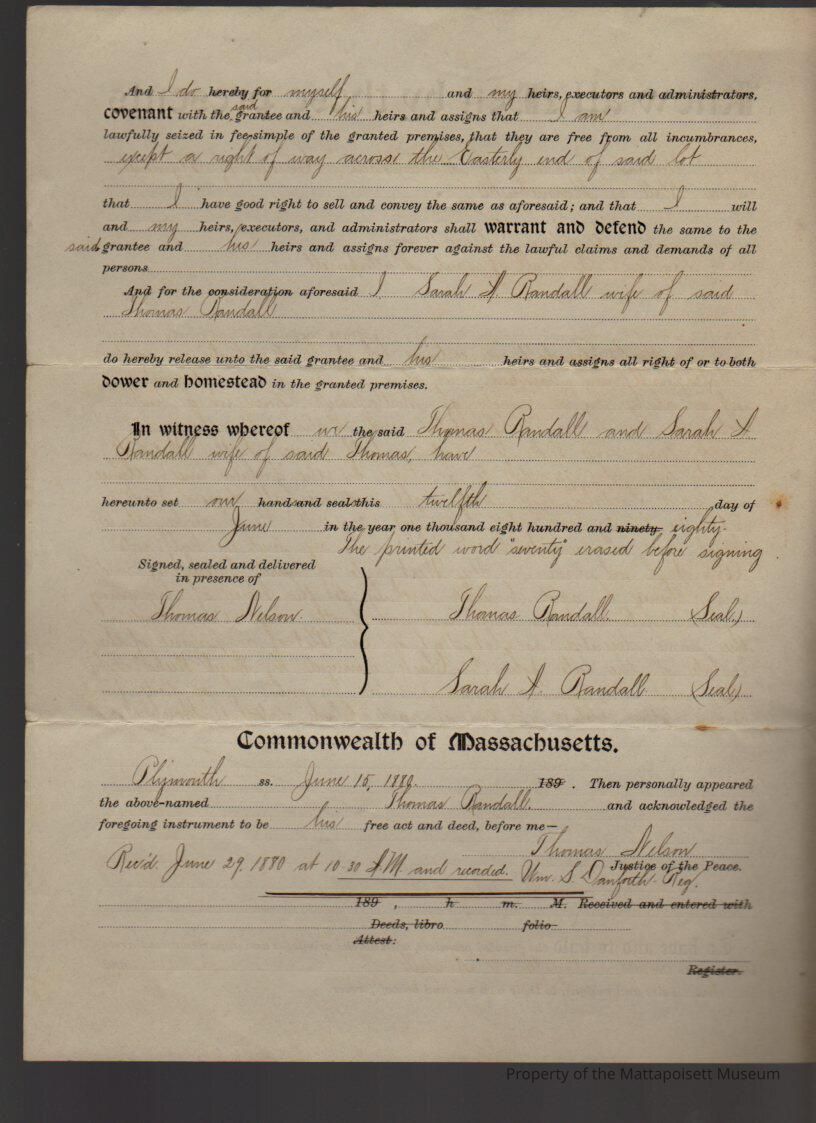 And I do hereby for myself and my heirs, executors and administrators,
covenant with the said grantee and his heirs and assigns that I am
lawfully seized in fee-simple of the granted premises, that they are free from all incumbrances,
except a right of way across the Easterly end of said lot
that I have good right to sell and convey the same as aforesaid; and that I will
and my heirs, executors, and administrators shall warrant and defend the same to the
said grantee and his heirs and assigns forever against the lawful claims and demands of all
persons
And for the consideration aforesaid I Sarah A Randall wife of said
Thomas Randall
do hereby release unto the said grantee and his heirs and assigns all right of or to both
dower and homestead in the granted premises.
In witness whereof we the said Thomas Randall and Sarah A
Randall wife of said Thomas, have
hereunto set our hand and seal this twelfth day of
June in the year one thousand eight hundred and ninety eighty.
The printed word "seventy" erased before signing
Signed, sealed and delivered
in presence of
Thomas Nelson. Thomas Randall. (Seal)
Sarah A. Randall (Seal)
Commonwealth of Massachusetts.
Plymouth ss. June 15, 1880. 189 . Then personally appeared
the above-named Thomas Randall. and acknowledged the
foregoing instrument to be his free act and deed, before me—
Thomas Nelson
Justice of the Peace.
Rec'd. June 29. 1880 at 10-30 AM and recorded. Wm. S Danforth Reg.
189 , h m. M. Received and entered with
Deeds, libro folio
Attest:
Register.
Property of the Mattapoisett Museum